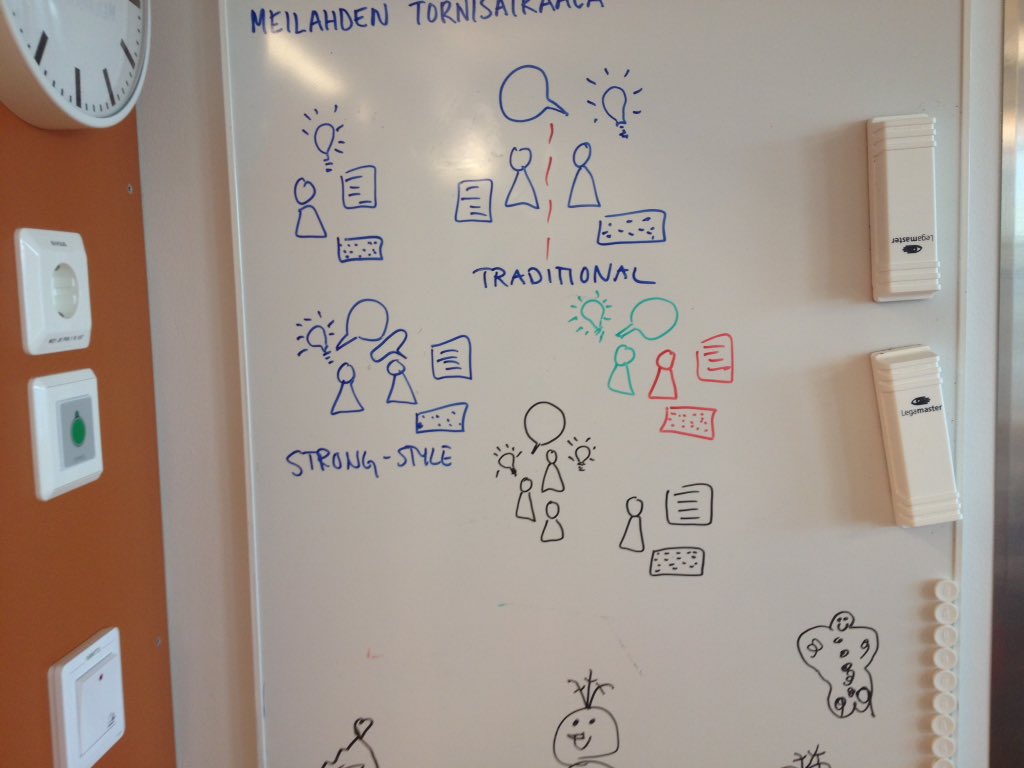 MEILAHDEN TORNISAIRAALA
TRADITIONAL
STRONG-STYLE
Legamaster
Legamaster